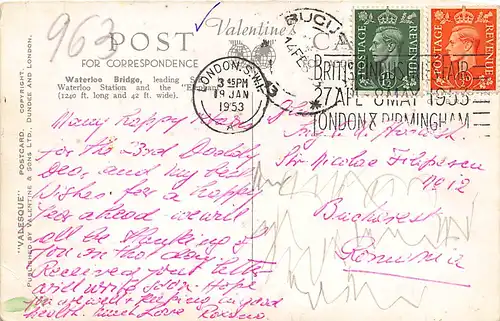 963
POST CARD
FOR CORRESPONDENCE
Valentine's
Waterloo Bridge, leading
Waterloo Station and the "Elephant
(1240 ft. long and 42 ft. wide).
Many happy
for the 23rd Daddy
Dear, and my best
wishes for a happy
year ahead we will
all be thinking of
you on that day.
Received your letter
will write soon. Hope
you are well & keeping in good
health. much Love
LONDON. S.W.1.
3 45PM
19 JAN
1953
A
BUCU
14 FE
13
POSTAGE REVENUE
POSTAGE REVENUE
BRITISH INDUSTRIES FAIR
27 APL-8 MAY 1953
LONDON & BIRMINGHAM
Str Nicolae Filipescu
No 12
Bucharest
Romania
"VALESQUE" POSTCARD. COPYRIGHT.
PUBLISHED BY VALENTINE & SONS LTD., DUNDEE AND LONDON.